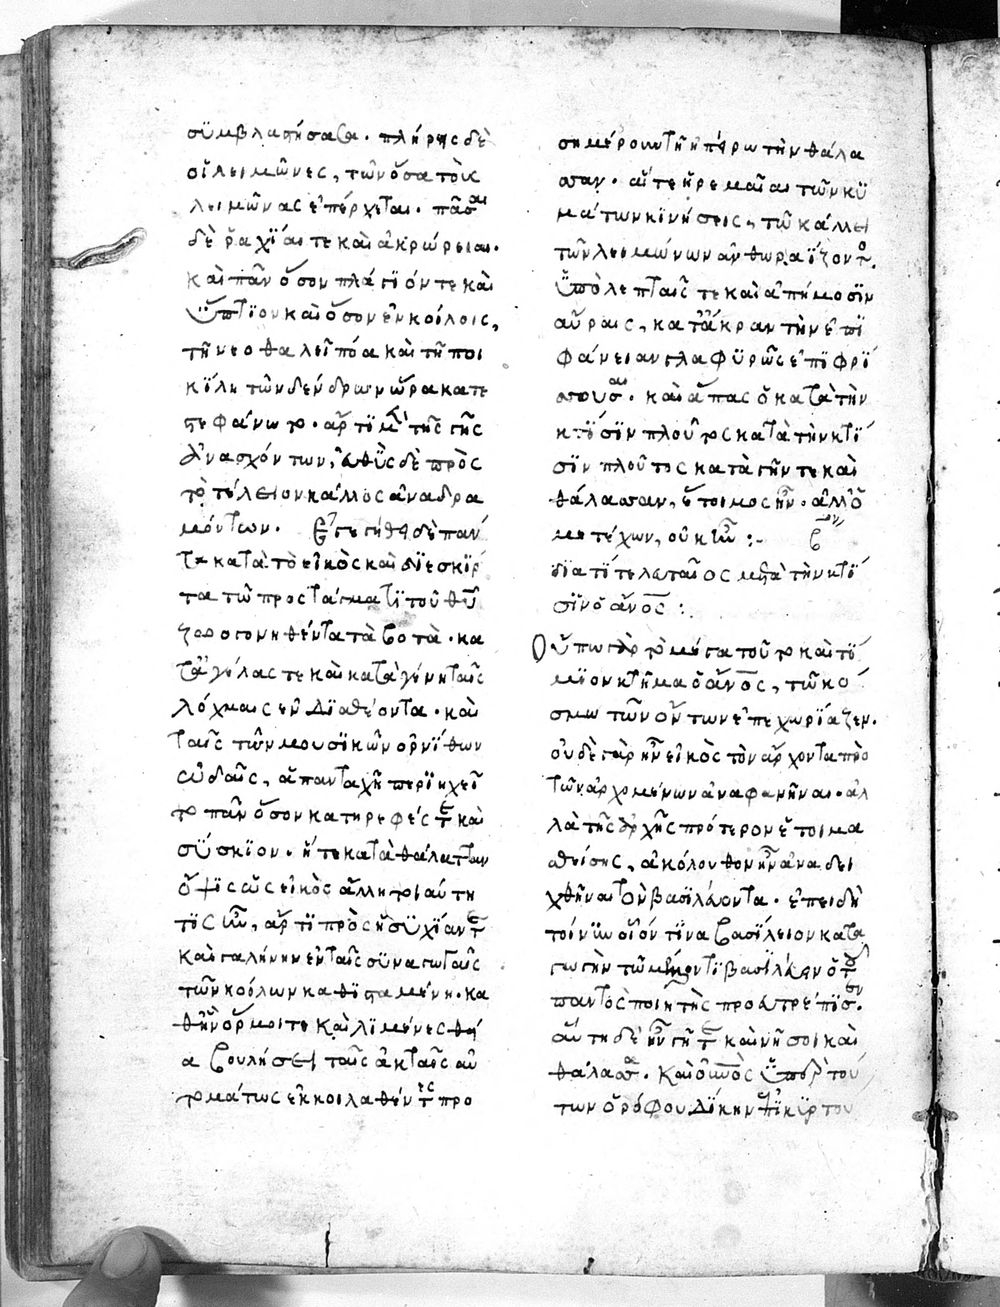 συμβλαστήσασα· πλήρης δὲ
οἱ λειμῶνες, τῶν ὅσα τοὺς
λειμῶνας ἐπέρχεται· πᾶσαι
δὲ ῥαχίαι τε καὶ ἀκρώρειαι·
καὶ πᾶν ὅσον πλάγιόν τε καὶ
ὕπτιον καὶ ὅσον ἐν κοίλοις,
τῇ νεοθαλεῖ πόα καὶ τῇ ποι
κίλῃ τῶν δένδρων ὥρα κατε
στεφάνωτο· ἄρτι μ̅ τῆς γῆς
ἀνασχόντων, εὐθὺς δὲ πρὸς
τὸ τέλειον κάλλος ἀναδρα
μόντων. ἐγεγήθει δὲ πάν
τα κατὰ τὸ εἰκὸς καὶ διεσκίρ
τα τῷ προστάγματι τοῦ θυ̅
ζωογονηθέντα τὰ βοτὰ· κα
τ' ἀγέλας τε καὶ κατὰ γένη ταῖς
λόχμαις ἐνδιαθέοντα· καὶ
ταῖς τῶν μουσικῶν ὀρνίθων
ᾠδαῖς, ἁπανταχῆ περιηχεῖ
το πᾶν ὅσον κατηρεφές τε καὶ
σύσκιον· ἥ τε κατὰ θάλατταν
ὄψις ὡς εἰκὸς ἄλλη τοιαύτη
τις ἦν, ἄρτι πρὸς ἡσυχίαν τε
καὶ γαλήνην ἐν ταῖς συναγωγαῖς
τῶν κοίλων καθισταμένη· κα
θ' ἣν ὅρμοι τε καὶ λιμένες θεί
α βουλήσει ταῖς ἀκταῖς αὐ
τομάτως ἐγκοιλαθέντες προ
σημέρουν τῇ ἠπείρω τὴν θάλα
σσαν· αἵ τε ἠρεμαῖαι τῶν κυ
μάτων κινήσεις, τῶ κάλλει
τῶν λειμώνων ἀνθωραΐζοντο.
ὑπὸ λεπταῖς τε καὶ ἀπήμοσιν
αὔραις, κατ' ἄκραν τὴν ἐπι
φάνειαν γλαφυρῶς ἐπιφρί
σσουσαι. καὶ ἅπας ὁ κατὰ τὴν
κτίσιν πλοῦτος κατὰ τὴν κτί
σιν πλοῦτος κατὰ γῆν τε καὶ
θάλασσαν, ἕτοιμος ἦν· ἀλλ' ὁ
μετέχων, οὐκ ἦν :-
διατί τελευταῖος μετὰ τὴν κτί
σιν ὁ ἄνος :
Οὔπω γὰρ τὸ μέγα τοῦτο καὶ τί
μιον κτῆμα ὁ ἄνος, τῶ κό
σμω τῶν ὄντων ἐπεχωρίαζεν.
οὐδὲ γὰρ ἦν εἰκὸς τὸν ἄρχοντα πρὸ
τῶν ἀρχομένων ἀναφανῆναι· ἀλ
λὰ τῆς ἀρχῆς πρότερον ἑτοιμα
σθείσης, ἀκόλουθον ἦν ἀναδει
χθῆναι τὸν βασιλεύοντα· ἐπειδὴ
τοίνυν οἷόν τινα βασίλειον κατα
γωγὴν τῶ μέλλοντι βασιλεύειν ὁ τοῦ
παντὸς ποιητὴς προευτρέπισεν.
αὕτη δὲ ἦν γῆ τε καὶ νῆσοι καὶ
θάλασσα. καὶ οὐνὸς ὑπὲρ τού
των ὀρόφου δίκην ἐπικυρτου